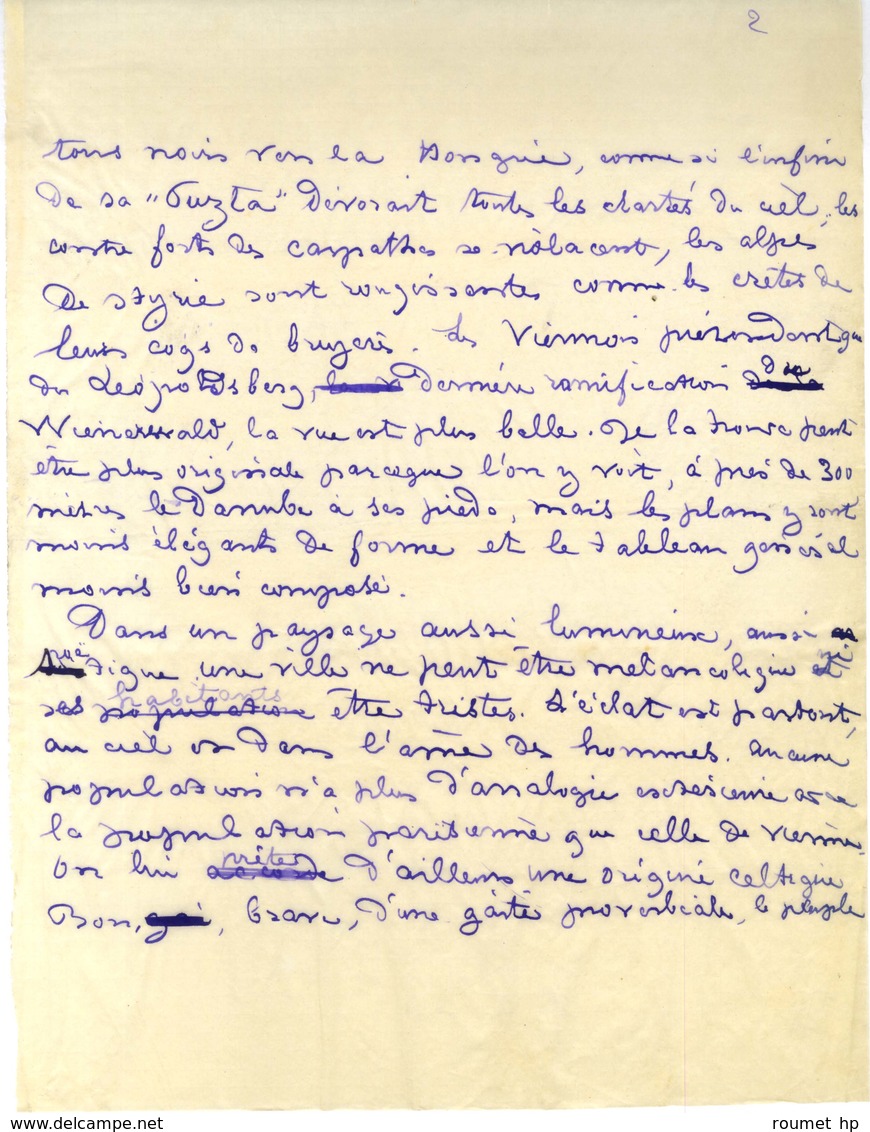 2
tons noirs vers la Hongrie, comme si l'infini
de sa "Puzta" dévorait toutes les clartés du ciel, les
contre forts des carpathes se violacent, les alpes
de styrie sont rougissantes comme les crêtes de
leurs coqs de bruyère. Les Viennois prétendent que
du Léopoldsberg, dernière ramification du
Wienerwald, la vue est plus belle. Je la trouve peut
être plus originale parceque l'on y voit, à près de 300
mètres le Danube à ses pieds, mais les plans y sont
moins élégants de forme et le tableau général
moins bien composé.
Dans un paysage aussi lumineux, aussi
poëtique une ville ne peut être mélancolique ni
ses habitants être tristes. L'éclat est partout,
au ciel et dans l'âme des hommes. aucune
population n'a plus d'analogie avec
la population parisienne que celle de vienne.
On lui prête d'ailleurs une origine celtique
Bon, gai, brave, d'une gaité proverbiale, le peuple
roumet hp
www.delcampe.net